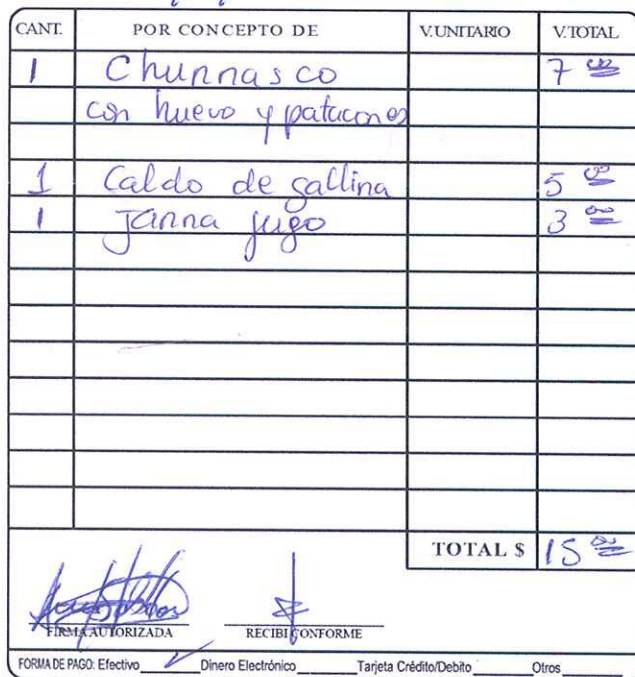 CANT. POR CONCEPTO DE V.UNITARIO V.TOTAL
1 Churrasco 7 00
con huevo y patacones
1 Caldo de gallina 5 00
1 Jarra jugo 3 00
TOTAL $ 15 00
FIRMA AUTORIZADA RECIBI CONFORME
FORMA DE PAGO: Efectivo ✓ Dinero Electrónico Tarjeta Crédito/Debito Otros